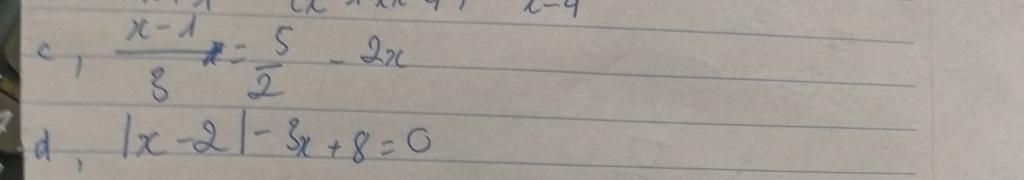 x-4
c, (x-1)/3 = 5/2 - 2x
d, |x-2|-3x+8=0